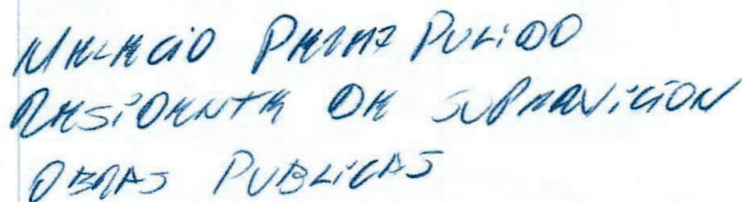 MELECIO PEREZ PULIDO
RESIDENTE DE SUPERVICION
OBRAS PUBLICAS